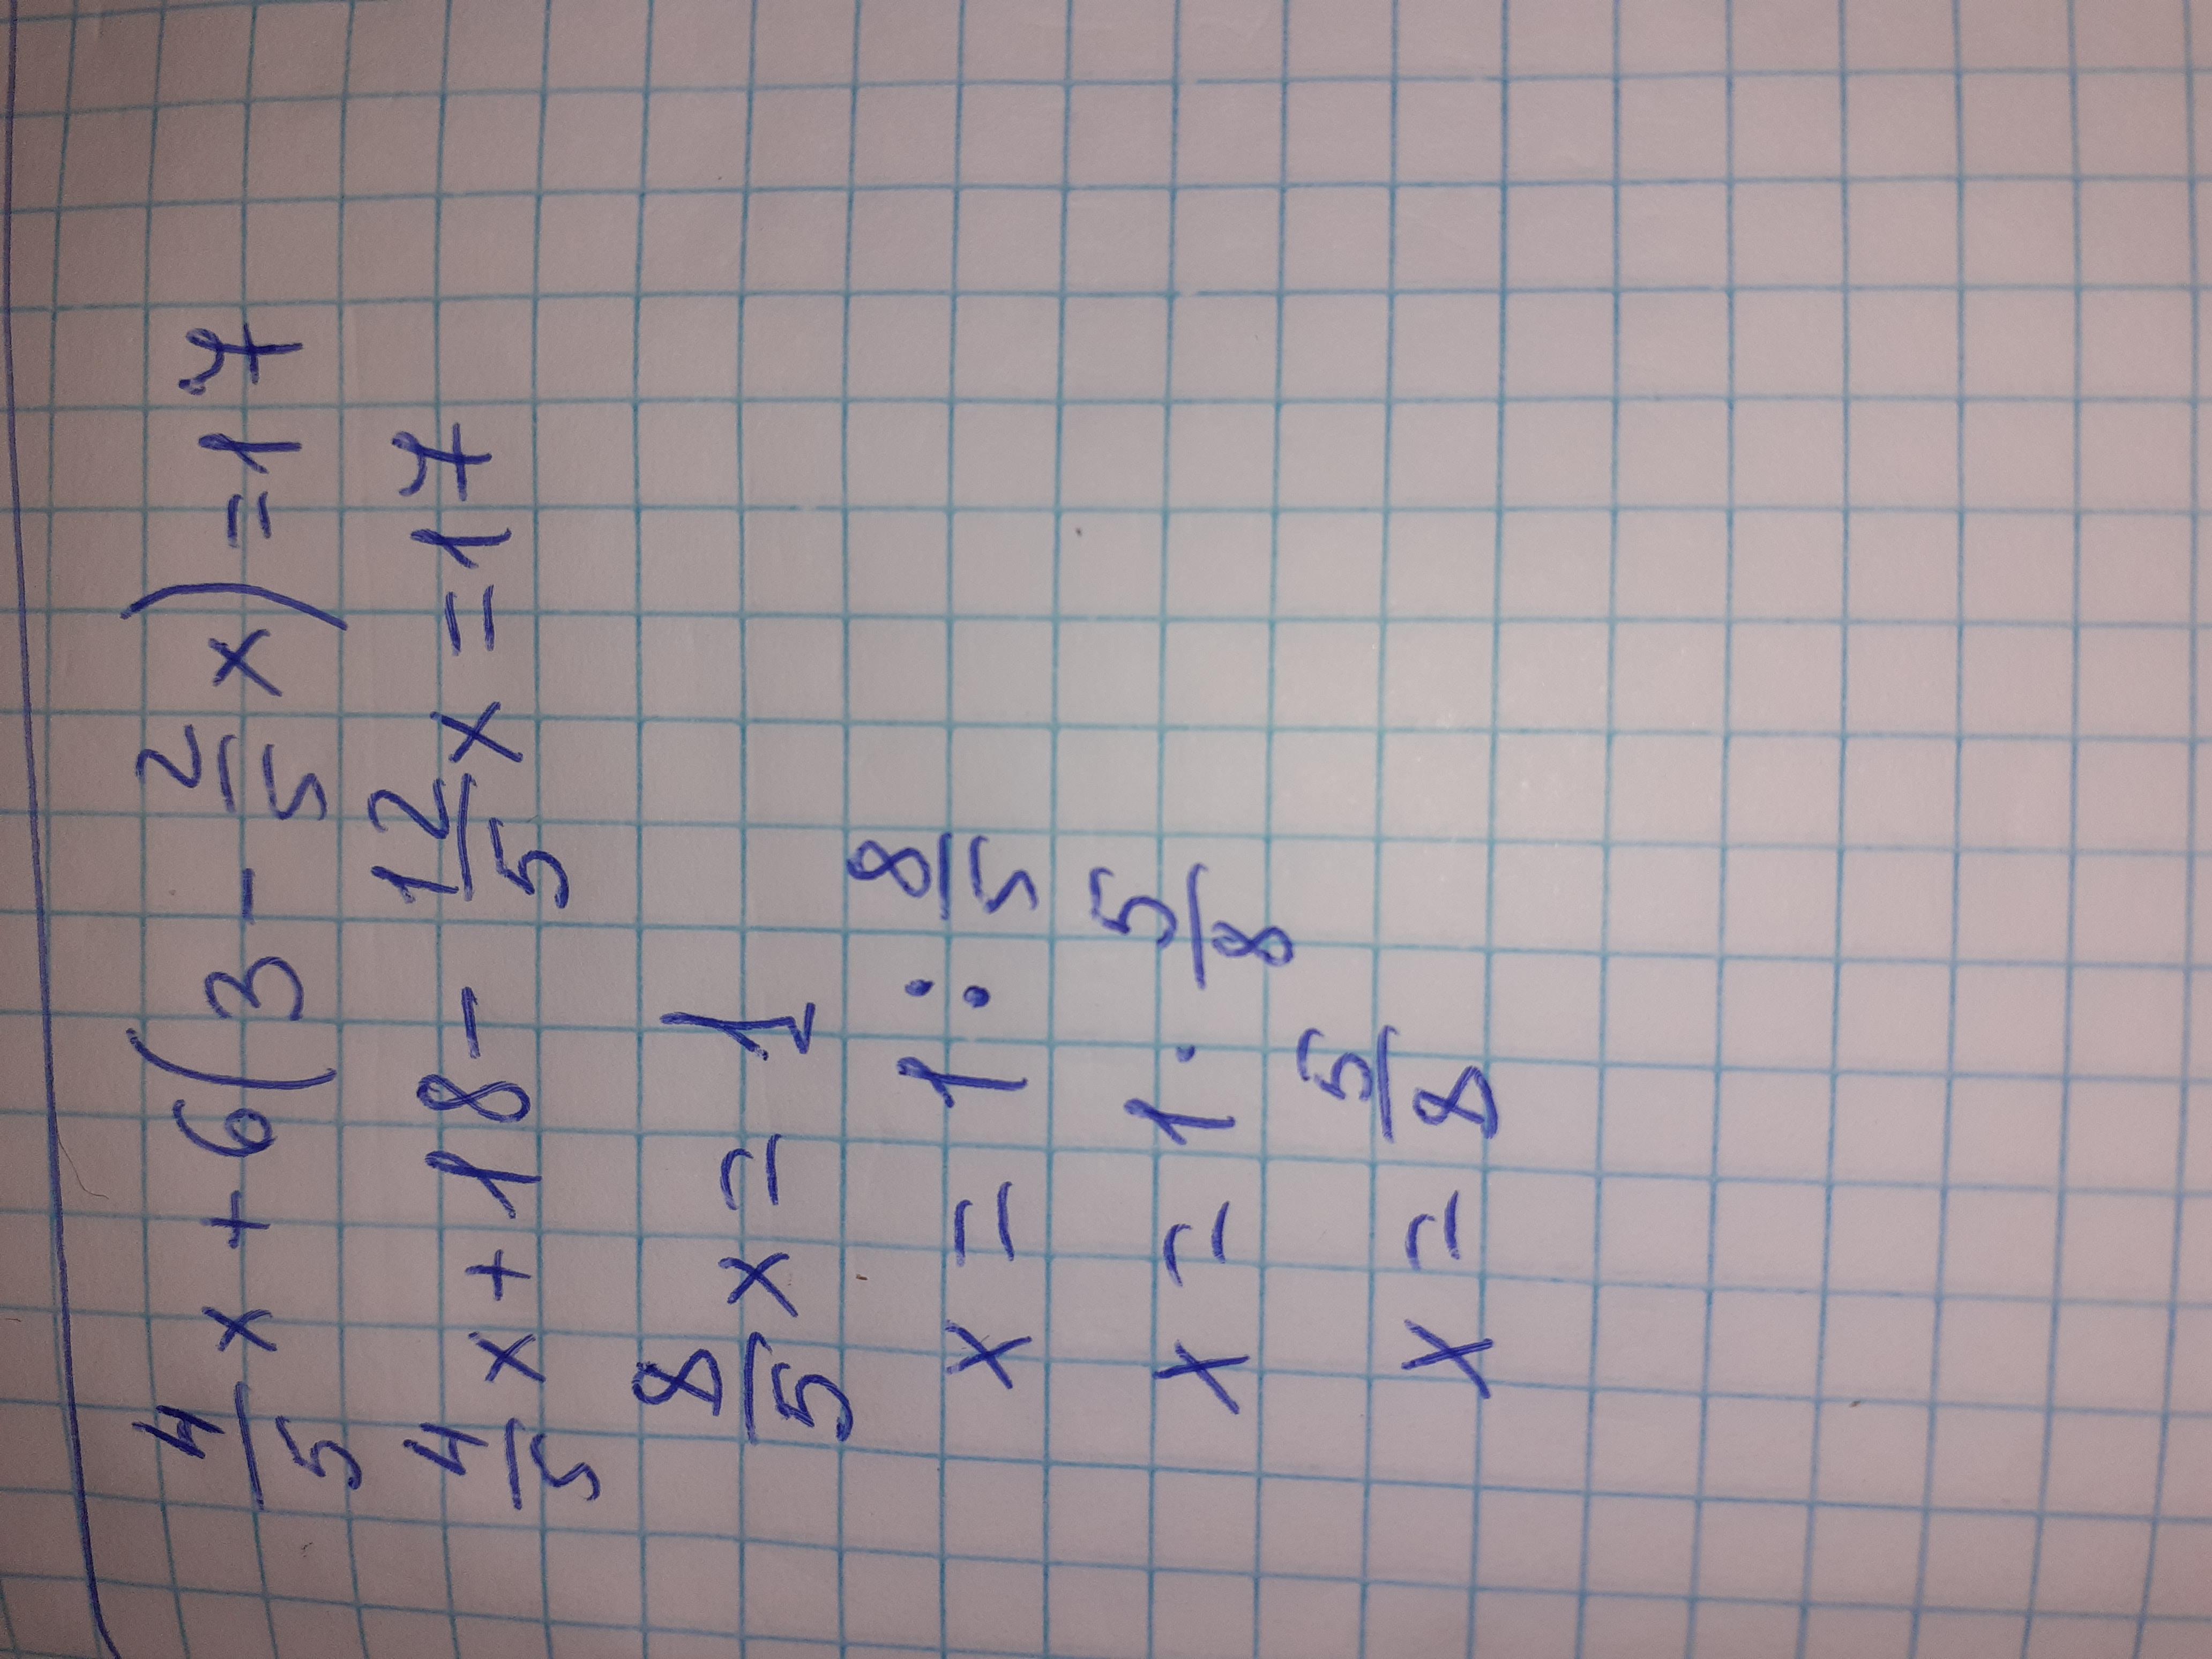 4/5 x + 6(3 - 2/5 x) = 17
4/5 x + 18 - 12/5 x = 17
8/5 x = 1
x = 1 : 8/5
x = 1 · 5/8
x = 5/8